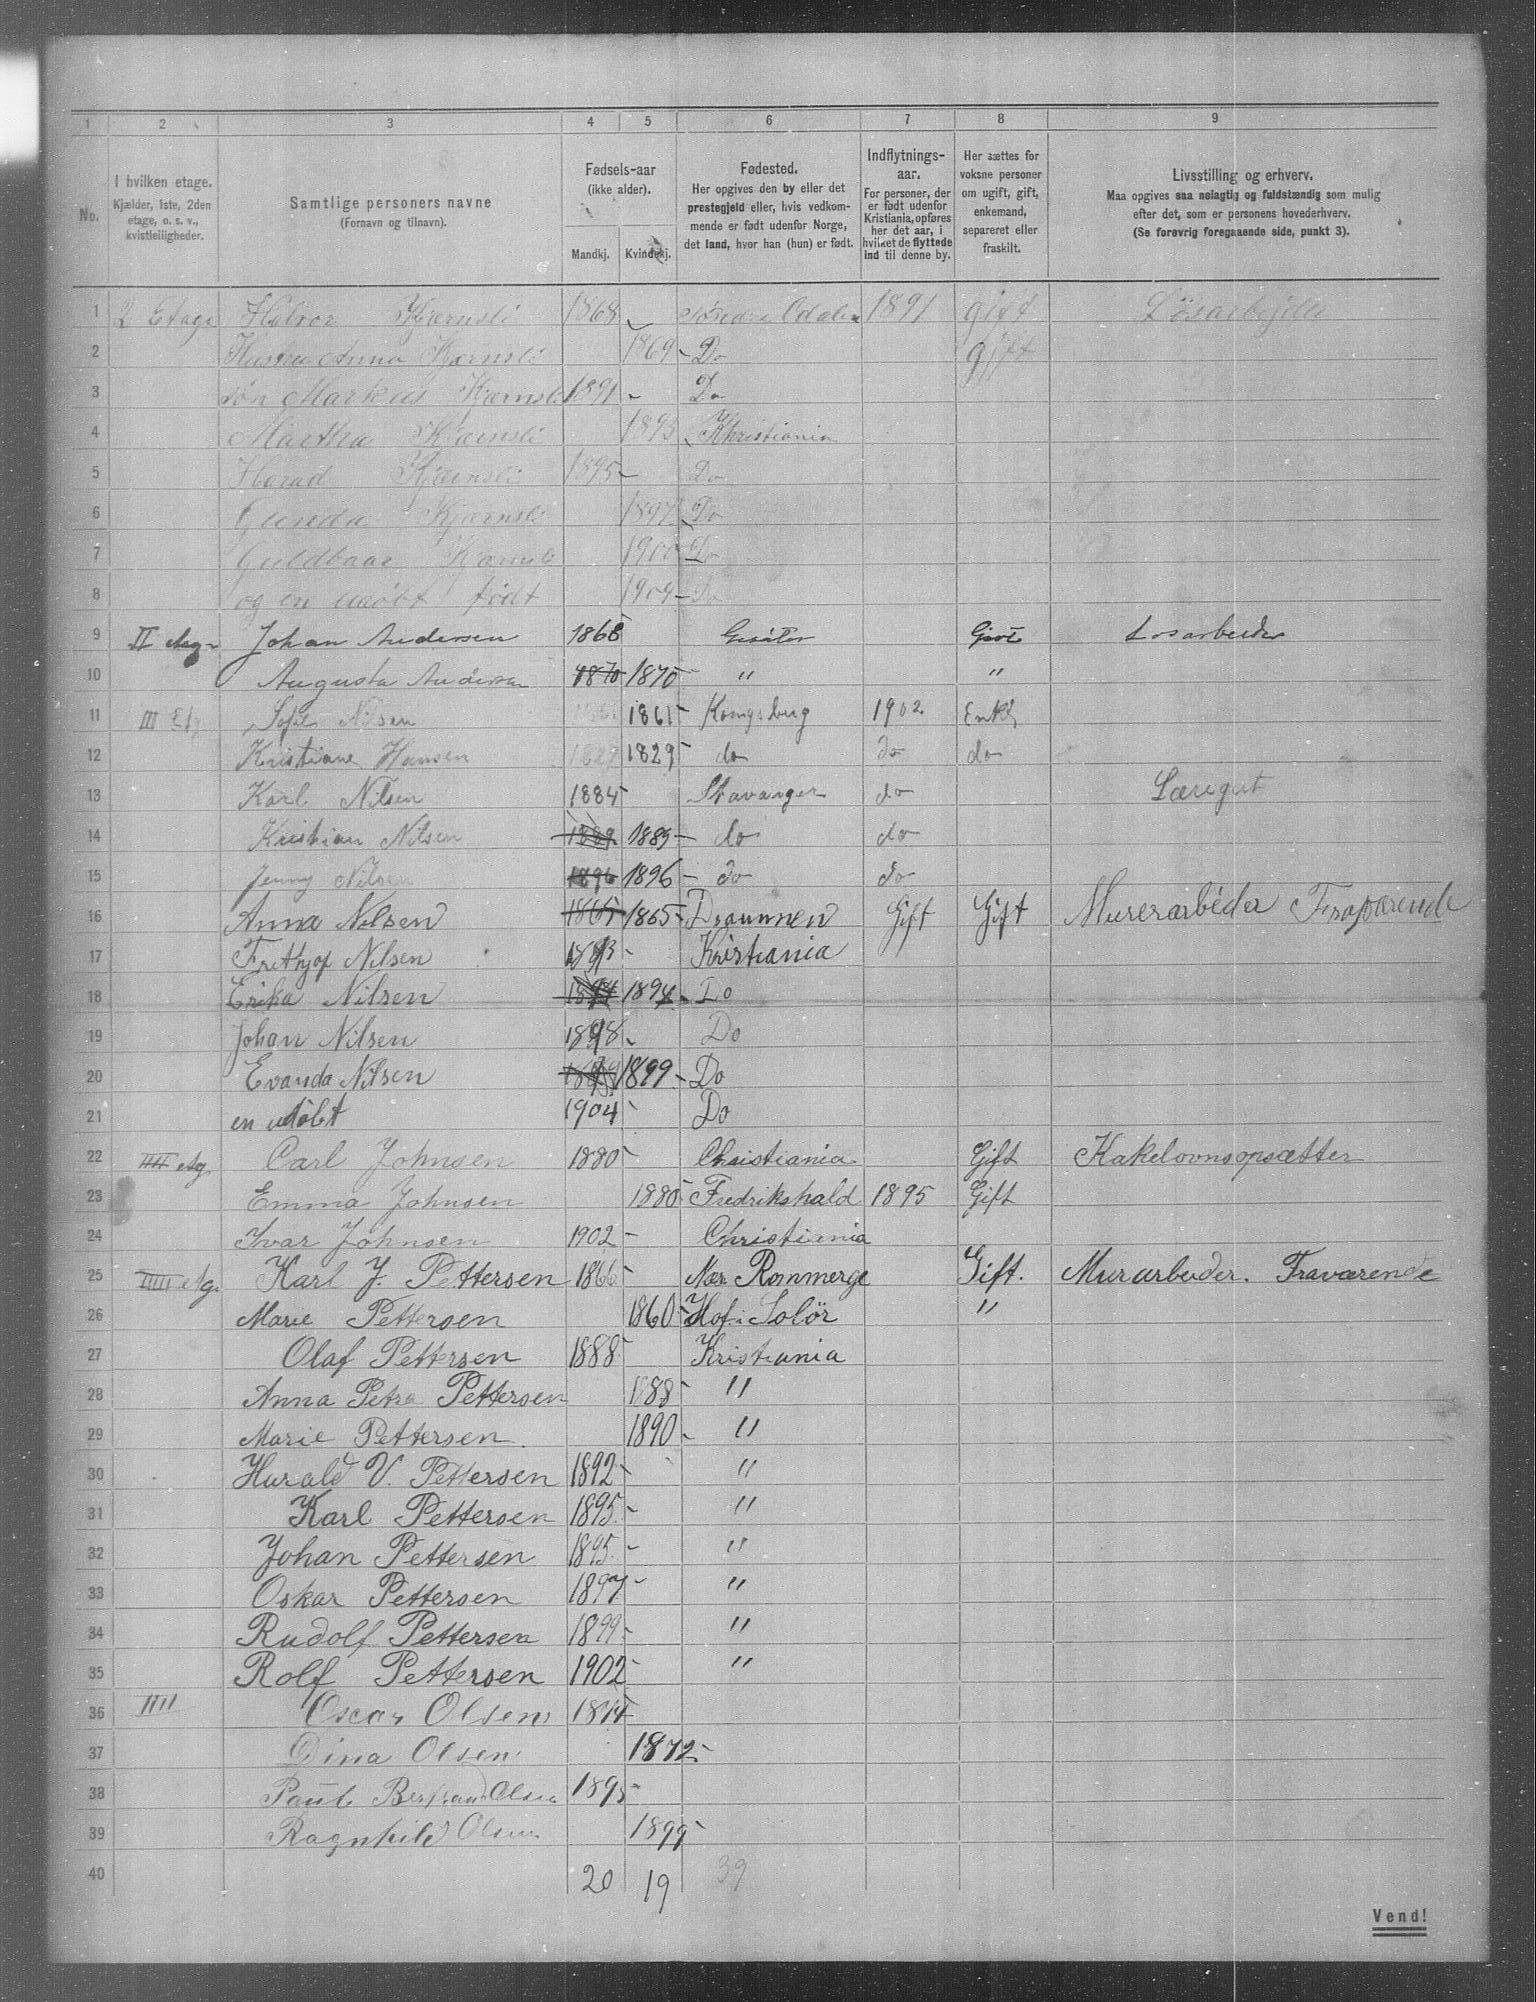 1 2 3 4 5 6 7 8 9
No.
I hvilken etage.
Kjælder, 1ste, 2den
etage, o. s. v.,
kvistleiligheder.
Samtlige personers navne
(Fornavn og tilnavn).
Fødsels-aar
(ikke alder).
Mandkj. Kvindekj.
Fødested.
Her opgives den by eller det
prestegjeld eller, hvis vedkom-
mende er født udenfor Norge,
det land, hvor han (hun) er født.
Indflytnings-
aar.
For personer, der
er født udenfor
Kristiania, opføres
her det aar, i
hvilket de flyttede
ind til denne by.
Her sættes for
voksne personer
om ugift, gift,
enkemand,
separeret eller
fraskilt.
Livsstilling og erhverv.
Maa opgives saa nøiagtig og fuldstændig som mulig
efter det, som er personens hovederhverv.
(Se forøvrig foregaaende side, punkt 3).
1 2 Etage Halvor Kjærnsli 1868 Søndre Odalen 1891 gift Løsarbejder
2 Hustru Anna Kjærnsli 1869 Do gift
3 søn Markus Kjærnsli 1891 Do
4 Martha Kjærnsli 1893 Khristiania
5 Harad Kjærnsli 1895 Do
6 Gunda Kjærnsli 1897 Do
7 Guldbaar Kjærnsli 1900 Do
8 og en udøbt født 1904 Do
9 II etag Johan Andersen 1868 Givt Løsarbeider
10 Augusta Andersen 1870 1870 " "
11 III Etg Sofie Nilsen 1861 Kongsberg 1902 Enke
12 Kristiane Hansen 1829 1829 do do do
13 Karl Nilsen 1884 Stavanger do Læregut
14 Kristian Nilsen 1889 1889 do do
15 Jenny Nilsen 1896 1896 do do
16 Anna Nilsen 1865 1865 Drammen Gift Gift Murerarbeder Fraværende
17 Frithjof Nilsen 1893 Kristiania
18 Erika Nilsen 1894 1894 Do
19 Johan Nilsen 1898 Do
20 Evanda Nilsen 1899 1899 Do
21 en udøbt 1904 Do
22 IIII etg. Carl Johnsen 1880 Christiania Gift Kakelovnsopsætter
23 Emma Johnsen 1880 Fredrikshald 1895 Gift
24 Ivar Johnsen 1902 Christiania
25 IIIII etg. Karl J. Pettersen 1866 Gift. Murarbeider. Fraværende
26 Marie Pettersen 1860 Hof i Solør "
27 Olaf Pettersen 1888 Kristiania
28 Anna Petra Pettersen 1888 "
29 Marie Pettersen. 1890 "
30 Harald V. Pettersen 1892 "
31 Karl Pettersen 1895 "
32 Johan Pettersen 1895 "
33 Oskar Pettersen 1897 "
34 Rudolf Pettersen 1899 "
35 Rolf Pettersen 1902 "
36 IIIII Oscar Olsen 1874
37 Dina Olsen 1872
38 Paul Bertrand Olsen 1895
39 Ragnhild Olsen 1899
40 20 19 39
Vend!